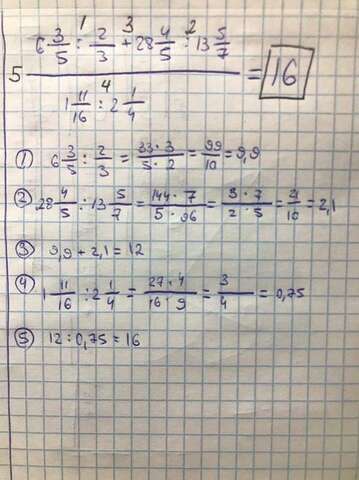 1 3 2
6 3/5 : 2/3 + 28 4/5 : 13 5/7
5 = 16
4
1 11/16 : 2 1/4
① 6 3/5 : 2/3 = 33·3/5·2 = 99/10 = 9,9
② 28 4/5 : 13 5/7 = 144·7/5·96 = 3·7/2·5 = 21/10 = 2,1
③ 9,9 + 2,1 = 12
④ 1 11/16 : 2 1/4 = 27·4/16·9 = 3/4 = 0,75
⑤ 12 : 0,75 = 16